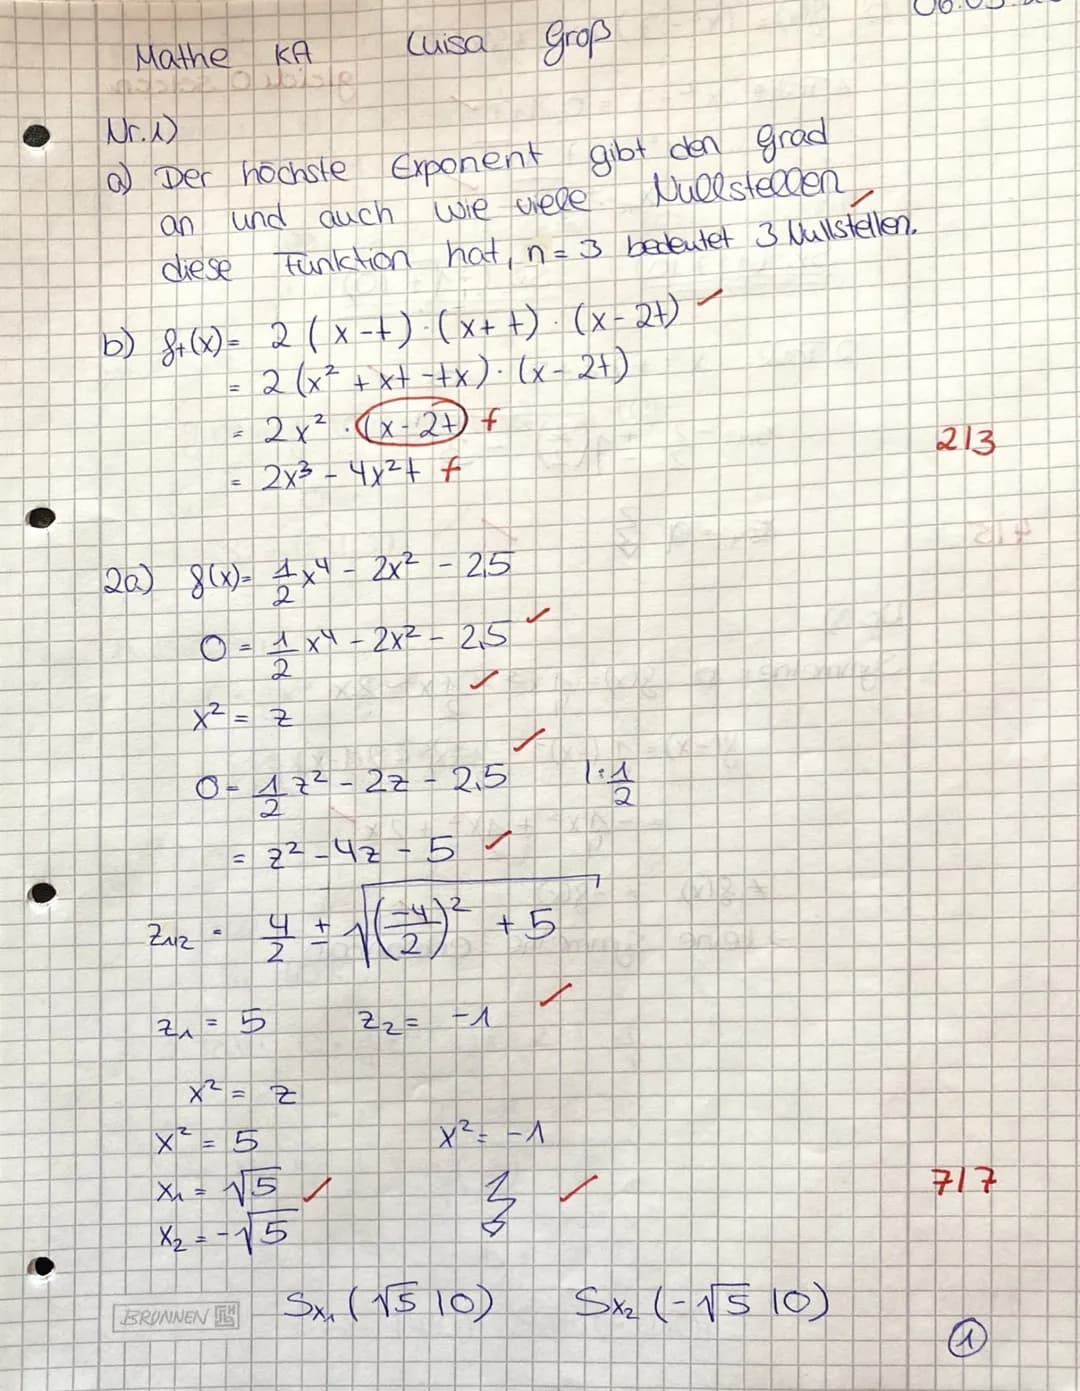 Mathe KA Luisa Groß
Nr.1)
a) Der höchste Exponent gibt den Grad
an und auch wie viele Nullstellen
diese Funktion hat, n = 3 bedeutet 3 Nullstellen. ✓
b) f_t(x) = 2 (x-t) · (x+t) · (x-2t) ✓
= 2 (x² + xt - tx) · (x-2t)
= 2x² · (x-2t) f
= 2x³ - 4x²t f
2/3
2a) f(x) = 1/2 x⁴ - 2x² - 2,5
0 = 1/2 x⁴ - 2x² - 2,5 ✓
x² = z ✓
0 = 1/2 z² - 2z - 2,5 ✓ |: 1/2
= z² - 4z - 5 ✓
z₁/₂ = 4/2 ± √((-4/2)² + 5)
z₁ = 5 z₂ = -1 ✓
x² = z
x² = 5 x² = -1
x₁ = √5 ✓ ✓ 7/7
x₂ = -√5
Sx₁ (√5 | 0) Sx₂ (-√5 | 0)
BRUNNEN
1